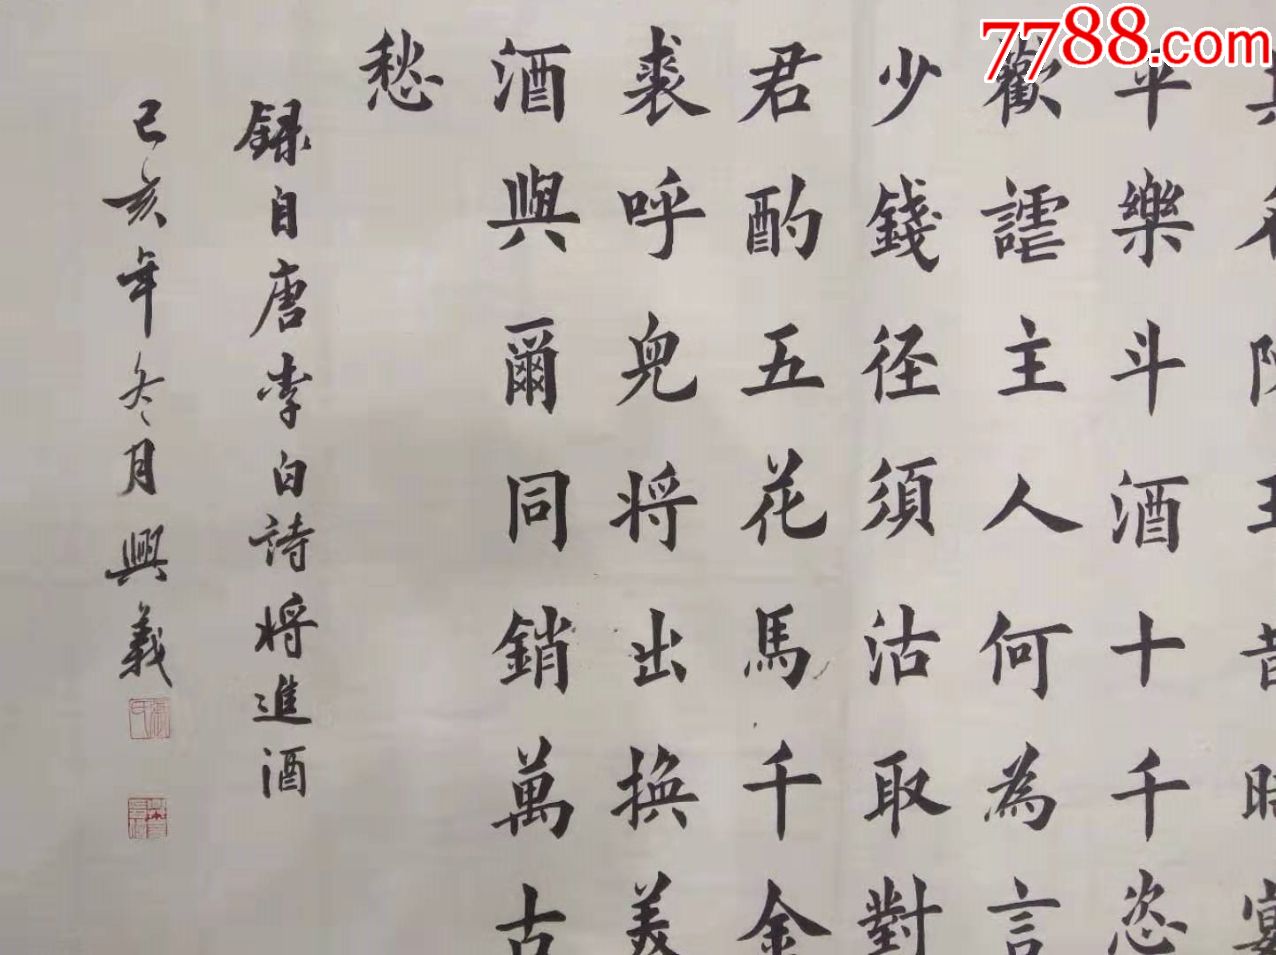 7788.com
陳王昔時宴
平樂斗酒十千恣
歡謔主人何為言
少錢径須沽取對
君酌五花馬千金
裘呼兒将出換美
酒與爾同銷萬古
愁
録自唐李白詩将進酒
己亥年冬月興義